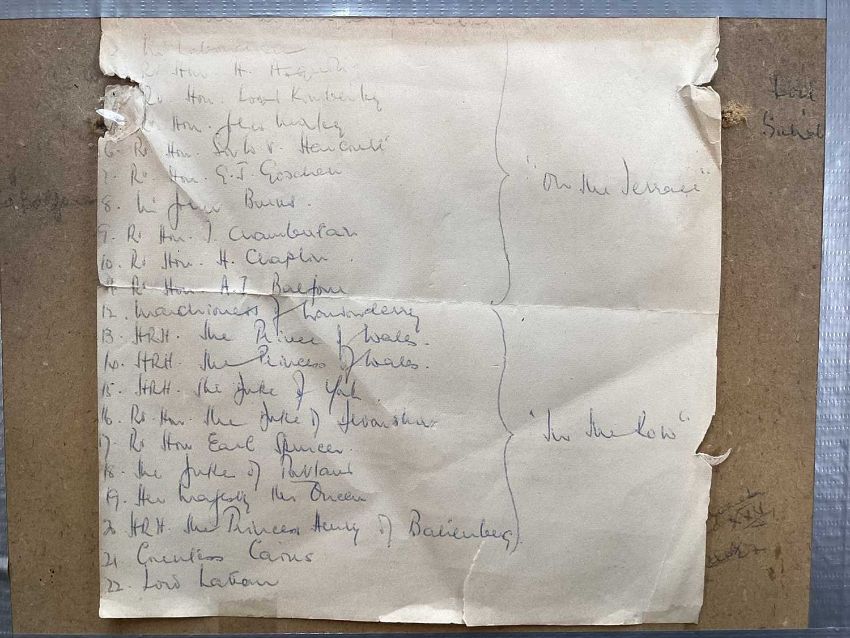 of Salisbury
3. Mr Labouchere
Rt Hon. H.
Rt. Hon. Lord Kimberley
Rt Hon. John Morley
6. Rt Hon. Sir W. V. Harcourt
7. Rt Hon. G.J. Goschen
8. Mr John Burns.
9. Rt Hon. J. Chamberlain
10. Rt Hon. H. Chaplin.
11. Rt Hon. A.J. Balfour
"On the Terrace"
12. Marchioness of Londonderry
13. HRH. The Prince of Wales.
14. HRH. The Princess of Wales.
15. HRH. The Duke of York
16. Rt Hon The Duke of Devonshire
17. Rt Hon Earl Spencer.
18. The Duke of Portland
19. Her Majesty the Queen
20. HRH. The Princess Henry of Battenberg
21. Countess Cairns
22. Lord Lathom
"In the Row"
Lord